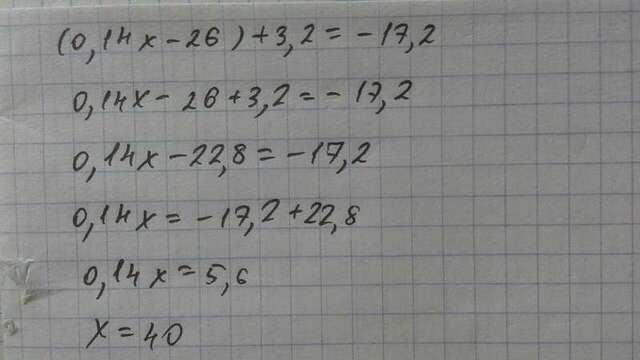 (0,14x-26)+3,2=-17,2
0,14x-26+3,2=-17,2
0,14x-22,8=-17,2
0,14x=-17,2+22,8
0,14x=5,6
x=40